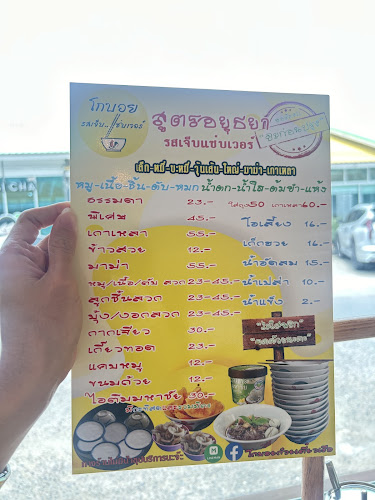 โกบอย
รสเจ็บ..แซ่บเวอร์
สูตรอยุธยา
รสเจ็บแซ่บเวอร์
เล็ก-หมี่-บะหมี่-วุ้นเส้น-ใหญ่-มาม่า-เกาเหลา
หมู-เนื้อ-ชิ้น-ตับ-หมก น้ำตก-น้ำใส-ต้มยำ-แห้ง
ธรรมดา 23.-
ใส่ถุง50 เกาเหลา60.-
พิเศษ 45.-
เกาเหลา 55.-
ข้าวสวย 12.-
มาม่า 55.-
หมู/เนื้อ/ตับ ลวก 23-45.-
ลูกชิ้นลวก 23-45.-
บุ้ง/งอกลวก 23-45.-
กากเสียว 30.-
เกี๊ยวทอด 23.-
แคบหมู 12.-
ขนมถ้วย 12.-
ไอติมมหาชัย 30.-
โอเลี้ยง 16.-
เก๊กฮวย 16.-
น้ำอัดลม 15.-
น้ำเปล่า 10.-
น้ำแข็ง 2.-